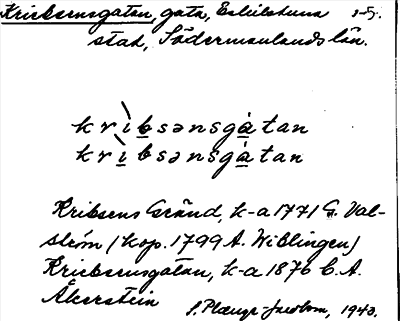 Kriebsensgatan, gata, Eskilstuna
stad, Södermanlands län.
krìbsənsgàtan
krìbsənsgátan
Kribsens Gränd, k-a 1771 G. Val-
ström (kop. 1799 A. Wiblingen)
Kriebsensgatan, k-a 1876 C. A.
Åkerstein
1943.